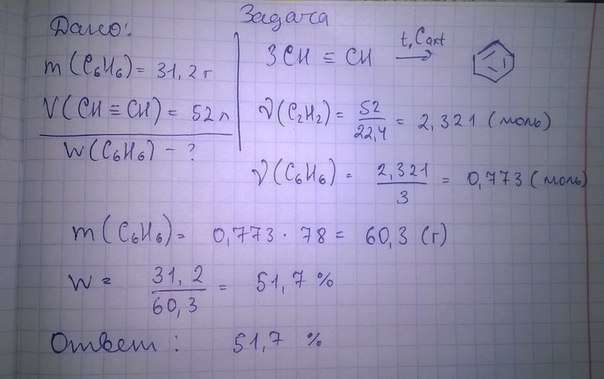 Задача
Дано:
m(C₆H₆) = 31,2 г
V(CH ≡ CH) = 52 л
W(C₆H₆) - ?
3CH ≡ CH t, Cакт →
ν(C₂H₂) = 52/22,4 = 2,321 (моль)
ν(C₆H₆) = 2,321/3 = 0,773 (моль)
m(C₆H₆) = 0,773 · 78 = 60,3 (г)
W = 31,2/60,3 = 51,7 %
Ответ: 51,7 %